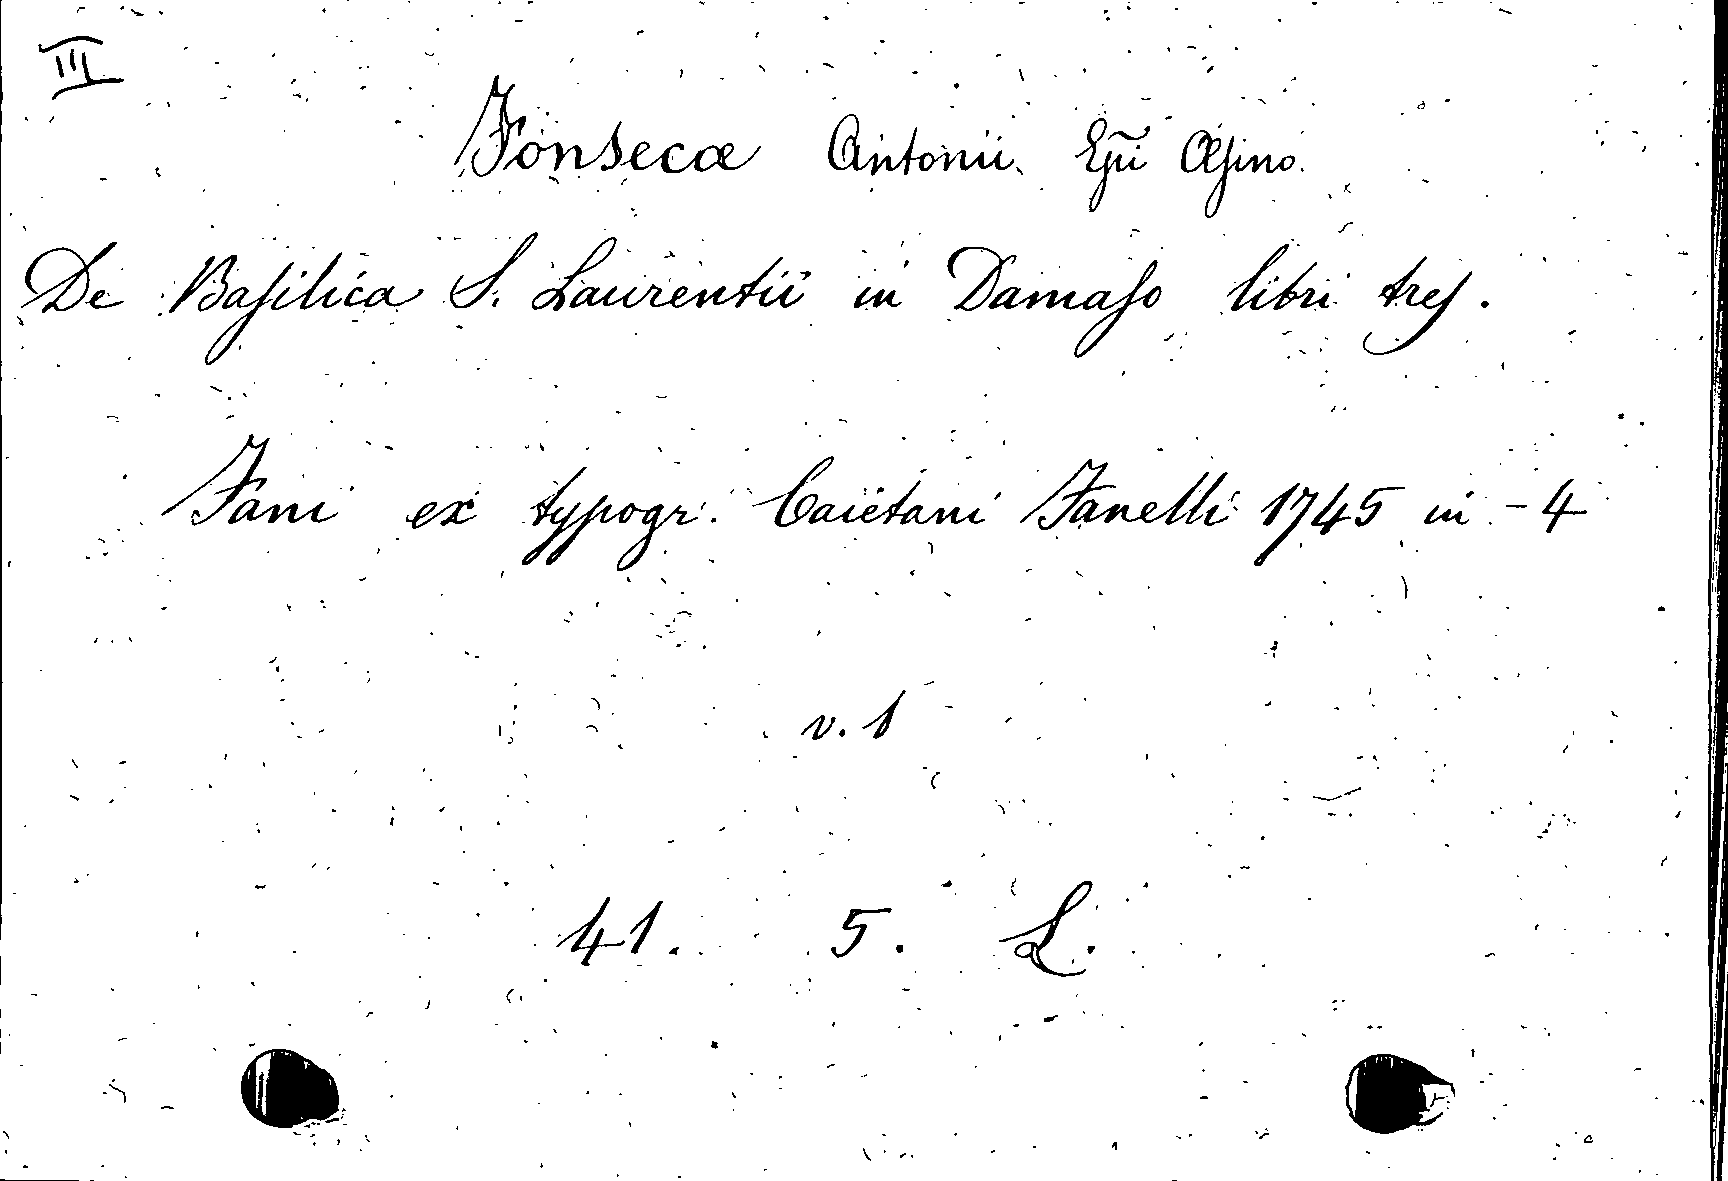 III
Fonsecæ Antonii Ep̃i Æsino.
De Basilica S. Laurentii in Damaso libri tres.
Fani ex typogr. Caietani Fanelli 1745 in - 4
v. 1
41. 5. L.